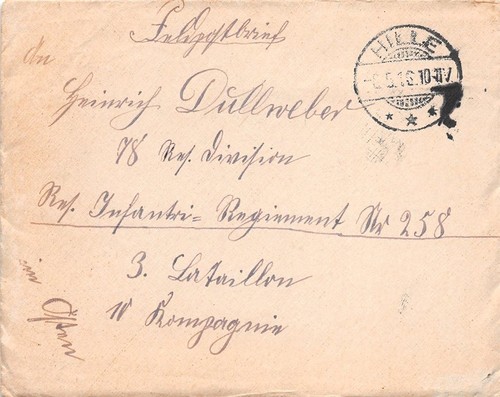 Feldpostbrief
An
Heinrich Dullweber
78 Res. Division
Res. Infantri=Regiement Nr 258
3. Bataillon
10 Kompagnie
im Osten
HILLE
5.16.10-11V